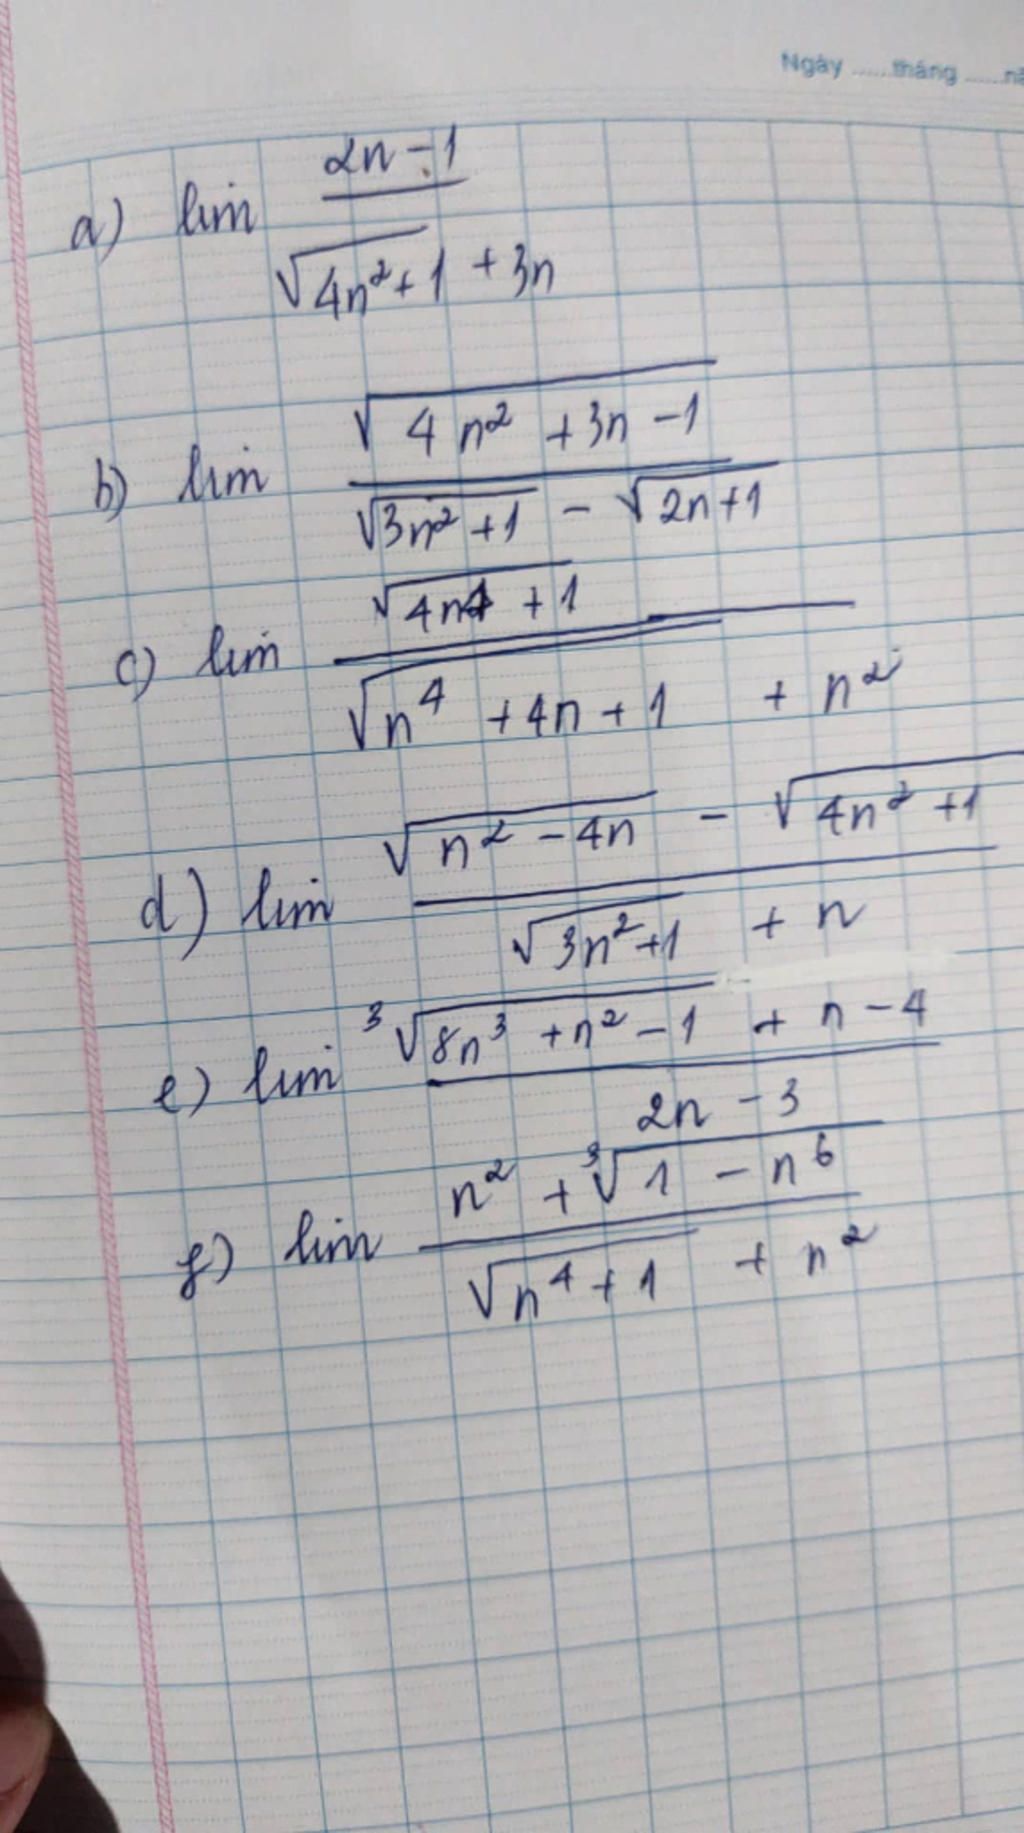 Ngày ......tháng ......nă
a) lim (2n - 1) / (√(4n² + 1) + 3n)
b) lim √(4n² + 3n - 1) / (√(3n² + 1) - √(2n + 1))
c) lim √(4n4 + 1) / (√(n⁴ + 4n + 1) + n²)
d) lim (√(n² - 4n) - √(4n² + 1)) / (√(3n² + 1) + n)
e) lim (³√(8n³ + n² - 1) + n - 4) / (2n - 3)
f) lim (n² + ³√(1 - n⁶)) / (√(n⁴ + 1) + n²)